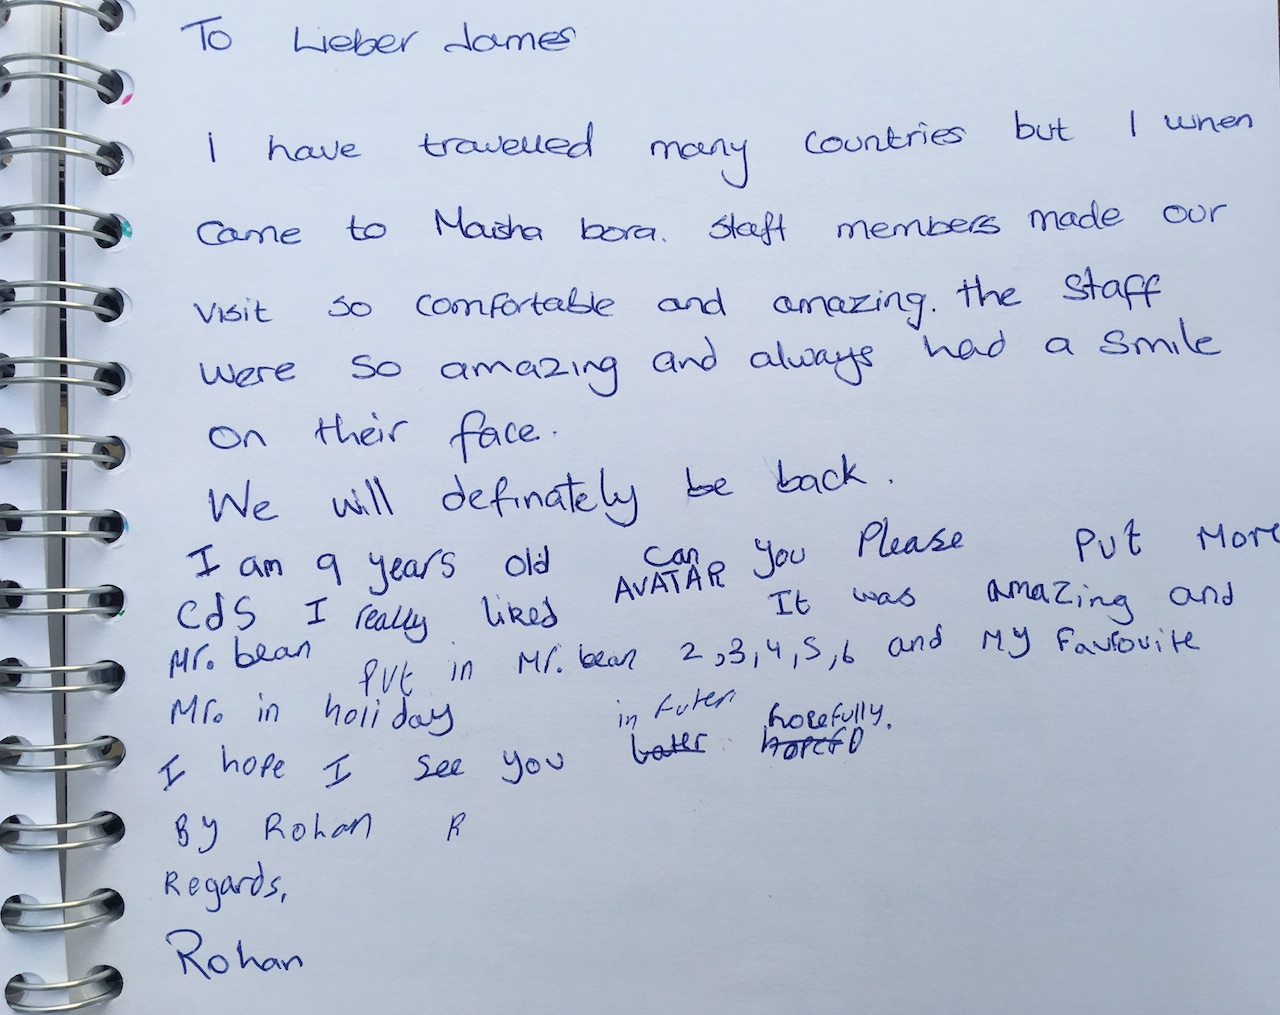 To Lieber James
I have travelled many countries but I when
came to Maisha bora. Staff members made our
visit so comfortable and amazing. the staff
were so amazing and always had a smile
on their face.
We will definately be back.
I am 9 years old can you Please Put More
cds I really liked AVATAR It was amazing and
Mr. bean put in Mr. bean 2,3,4,5,6 and My Favrouite
Mr. in holiday
I hope I see you in futer hopefully.
By Rohan R
Regards,
Rohan